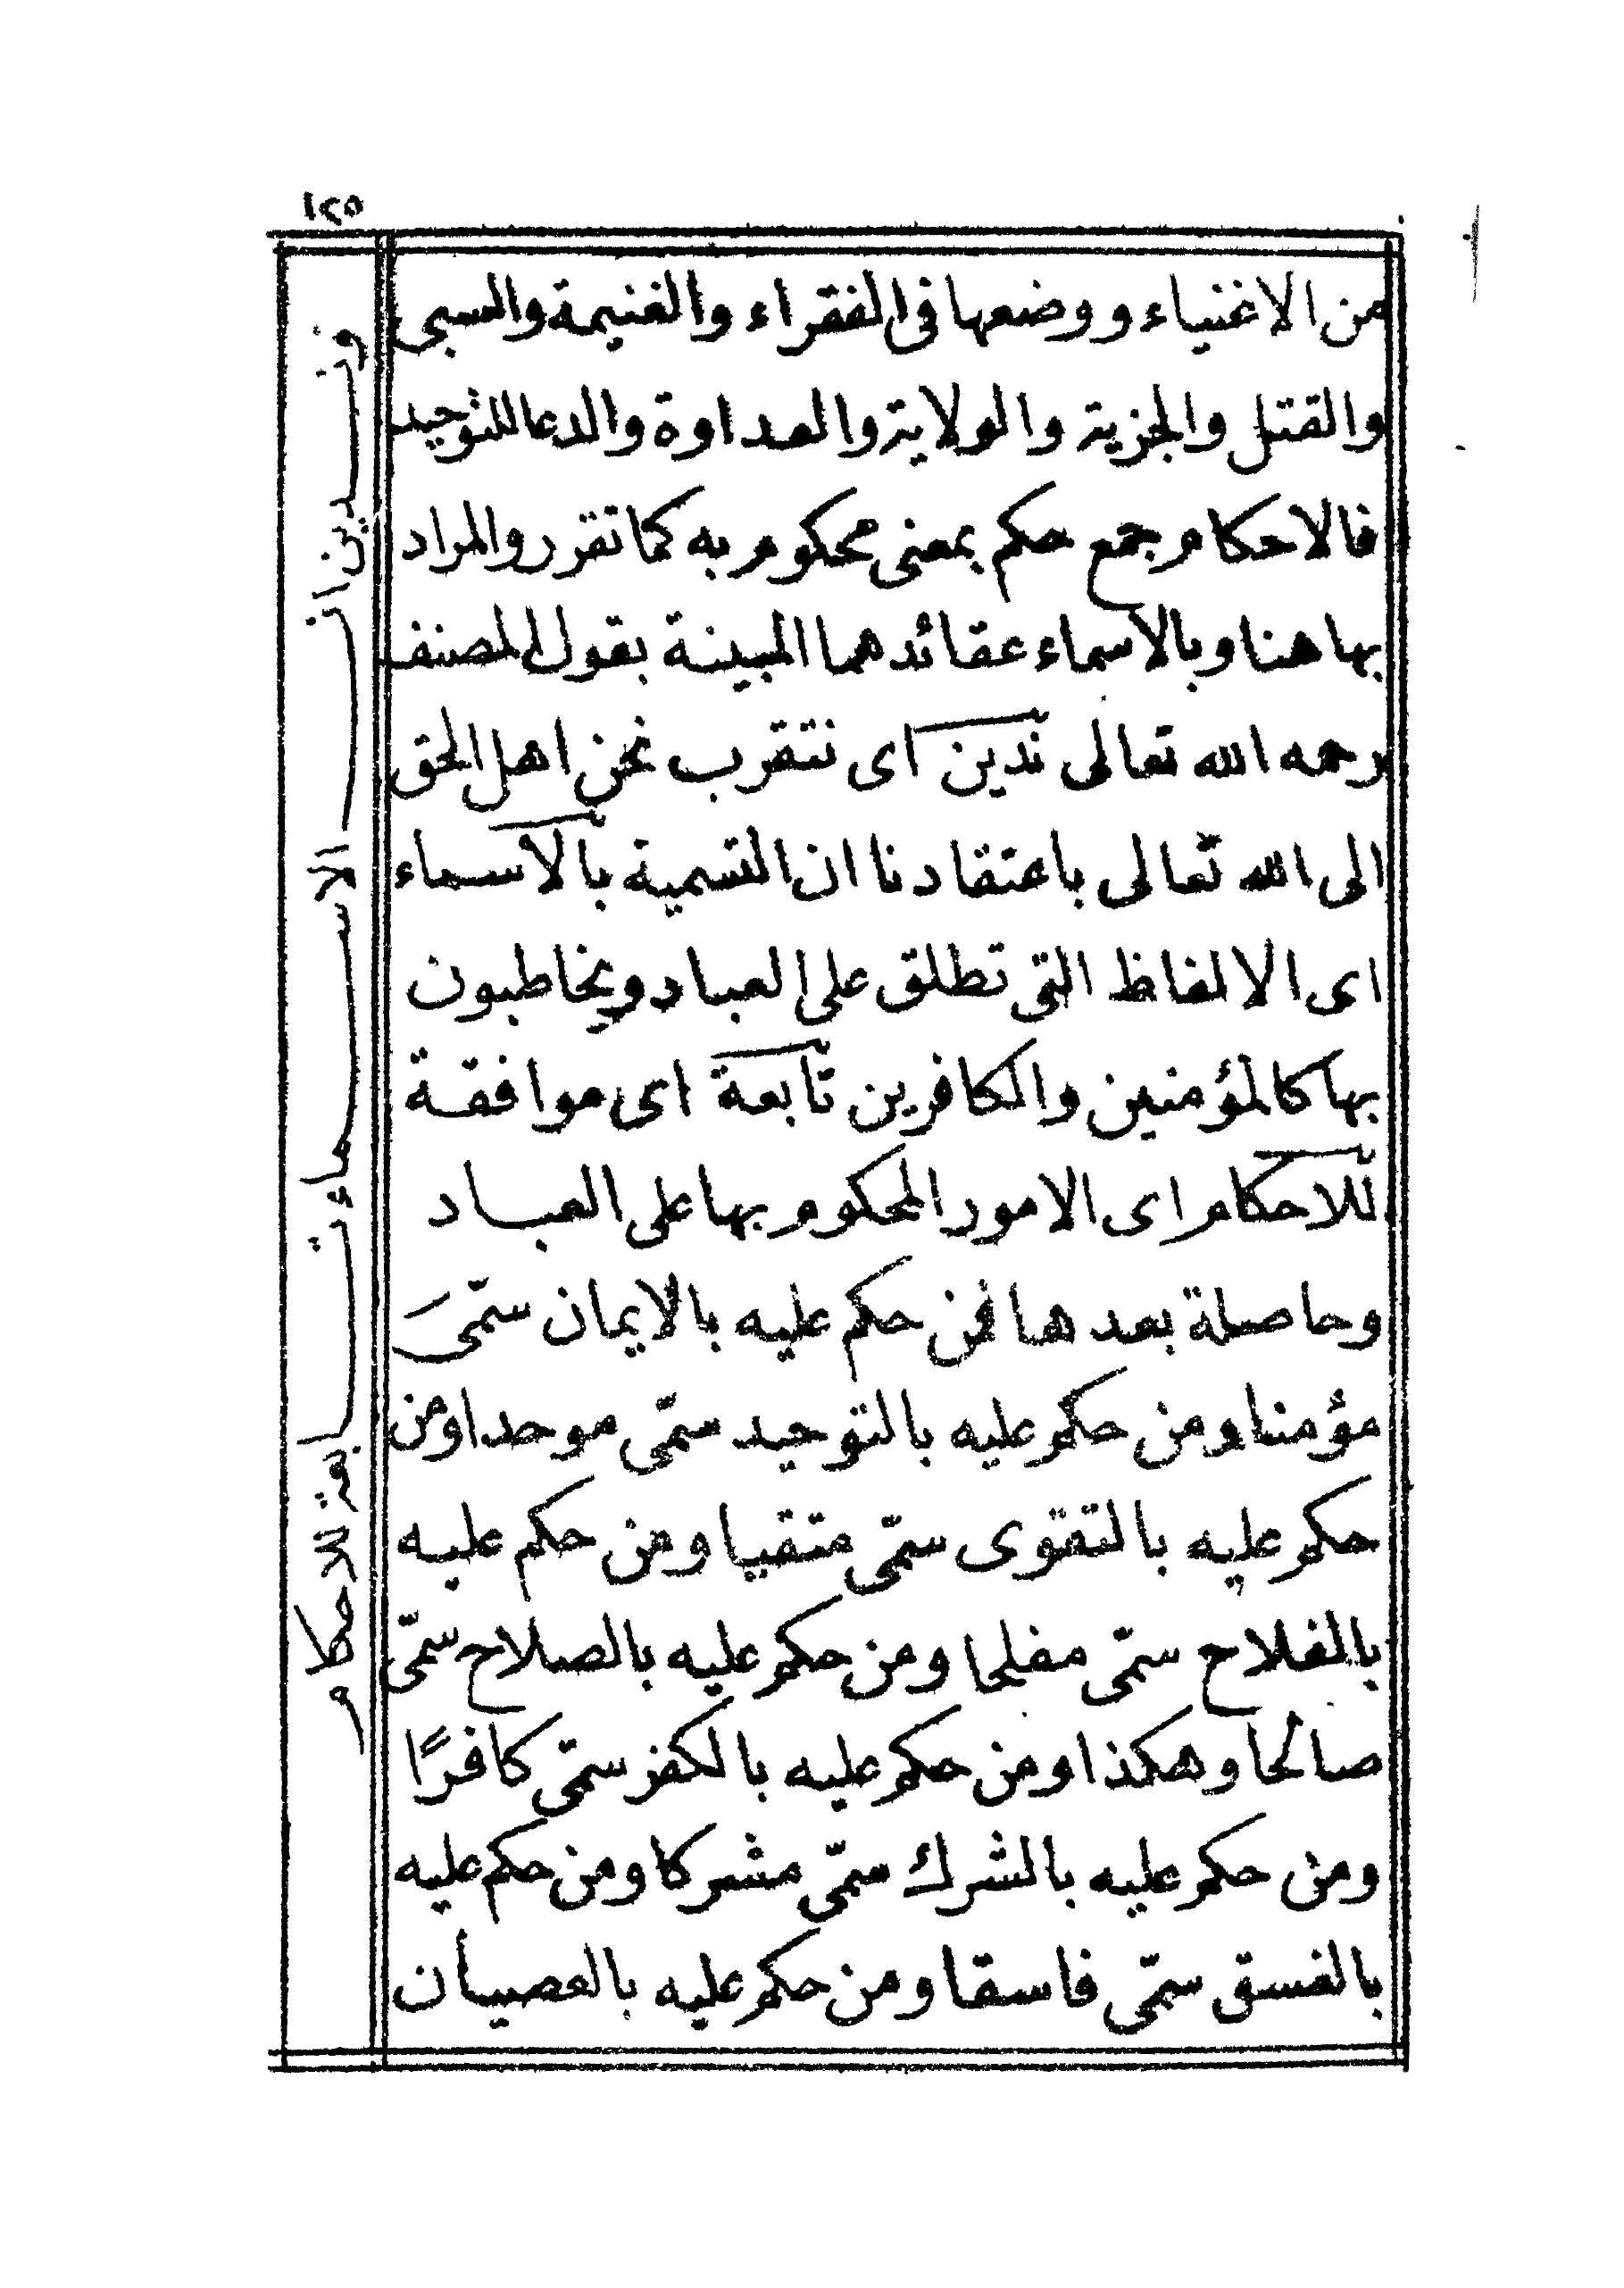 ١٢٥
من الاغنياء ووضعها فى الفقراء والغنيمة والسبى
والقتل والجزية والولاية والعداوة والدعا للتوحيد
فالاحكام جمع حكم بمعنى محكوم به كما تقرر والمراد
بها هنا وبالاسماء عقائدهما المبينة بقول المصنف
رحمه الله تعالى ندين اى نتقرب نحن اهل الحق
الى الله تعالى باعتقادنا ان التسمية بالاسماء
اى الالفاظ التى تطلق على العباد ويخاطبون
بها كالمؤمنين والكافرين تابعة اى موافقة
للاحكام اى الامور المحكوم بها على العباد
وحاصلة بعدها فمن حكم عليه بالايمان سمّىَ
مؤمنا ومن حكم عليه بالتوحيد سمّى موحدا ومن
حكم عليه بالتقوى سمّى متقيا ومن حكم عليه
بالفلاح سمّى مفلحا ومن حكم عليه بالصلاح سمّى
صالحا وهكذا ومن حكم عليه بالكفر سمّى كافرًا
ومن حكم عليه بالشرك سمّى مشركا ومن حكم عليه
بالفسق سمّى فاسقا ومن حكم عليه بالعصيان
وندين ان الاسماء تابعة للاحكام